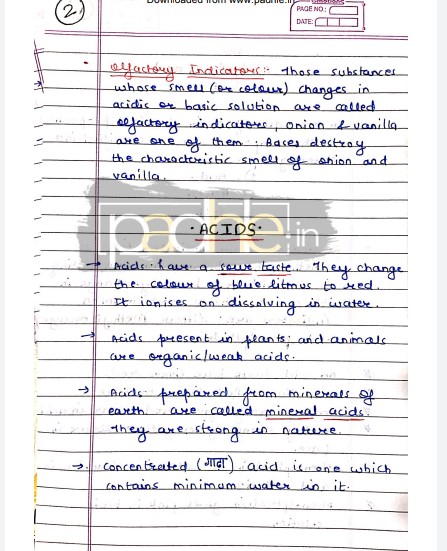 Downloaded from www.padhle.in
PAGE NO.:
DATE:
2
• Olfactory Indicators:- Those substances
whose smell (or colour) changes in
acidic or basic solution are called
olfactory indicators, onion & vanilla
are one of them. Bases destroy
the characteristic smell of onion and
vanilla.
padhle.in
• ACIDS •
→ Acids have a sour taste. They change
the colour of blue litmus to red.
It ionises on dissolving in water.
→ Acids present in plants, and animals
are organic/weak acids.
→ Acids prepared from minerals of
earth are called mineral acids.
They are strong in nature.
→ Concentrated (गाढ़ा) acid is one which
contains minimum water in it.